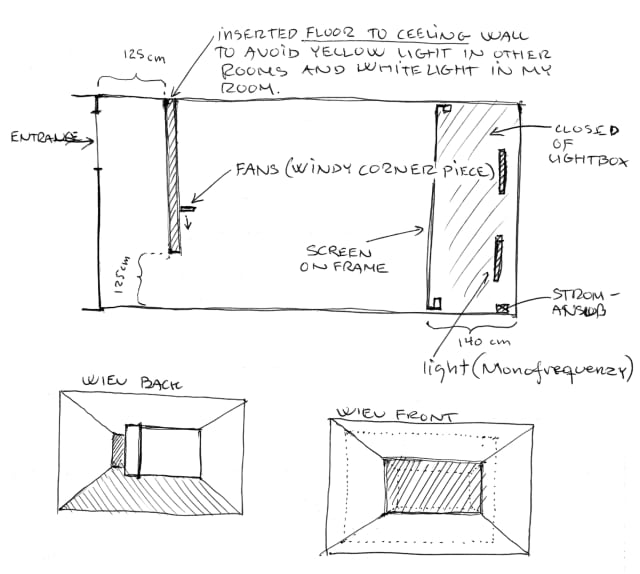 INSERTED FLOOR TO CEELING WALL
TO AVOID YELLOW LIGHT IN OTHER
ROOMS AND WHITE LIGHT IN MY
ROOM.
125cm
ENTRANCE
CLOSED
OF
LIGHTBOX
FANS (WINDY CORNER PIECE)
SCREEN
ON FRAME
125cm
STROM-
140 cm
light (Monofrequenzy)
WIEV BACK
WIEV FRONT